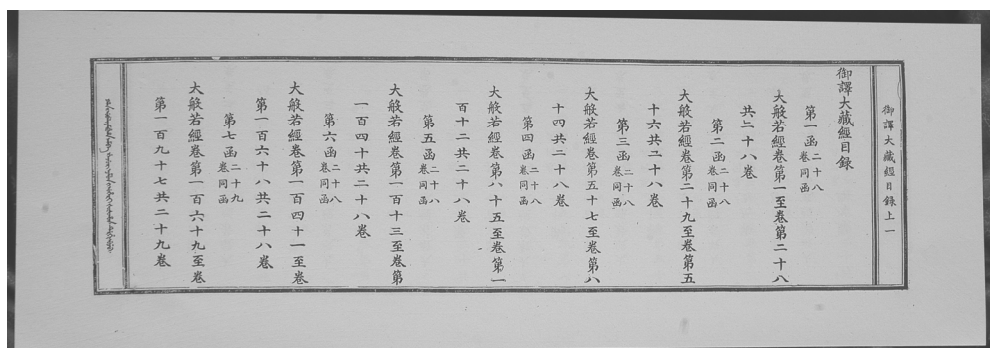 御譯大藏經目錄上一
御譯大藏經目錄
第一函二十八卷同函
大般若經卷第一至卷第二十八
共二十八卷
第二函二十八卷同函
大般若經卷第二十九至卷第五
十六共二十八卷
第三函二十八卷同函
大般若經卷第五十七至卷第八
十四共二十八卷
第四函二十八卷同函
大般若經卷第八十五至卷第一
百十二共二十八卷
第五函二十八卷同函
大般若經卷第一百十三至卷第
一百四十共二十八卷
第六函二十八卷同函
大般若經卷第一百四十一至卷
第一百六十八共二十八卷
第七函二十九卷同函
大般若經卷第一百六十九至卷
第一百九十七共二十九卷